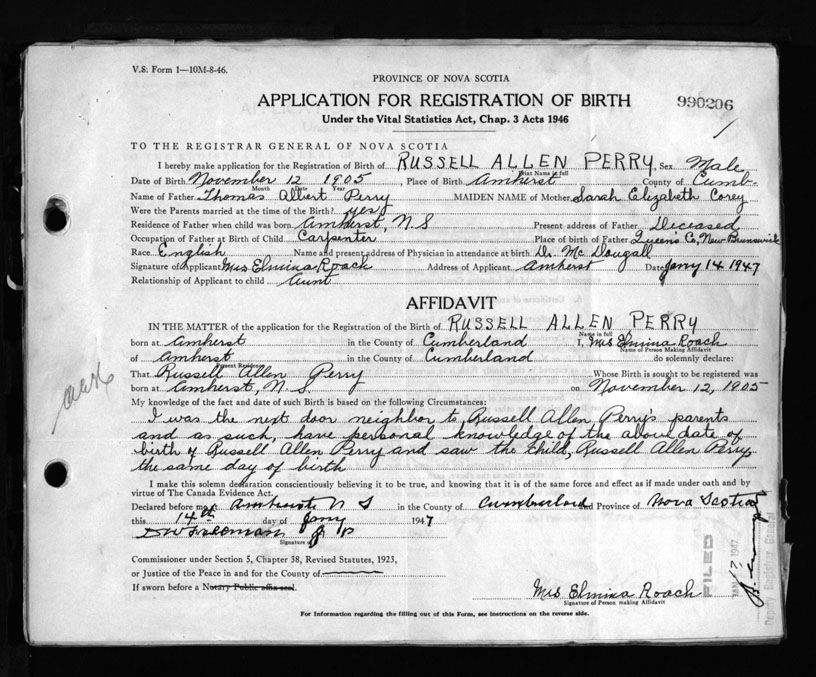 V.S. Form 1—10M-8-46.
PROVINCE OF NOVA SCOTIA
APPLICATION FOR REGISTRATION OF BIRTH
990206
Under the Vital Statistics Act, Chap. 3 Acts 1946
TO THE REGISTRAR GENERAL OF NOVA SCOTIA
I hereby make application for the Registration of Birth of RUSSELL ALLEN PERRY, Sex Male
Print Name in full
Date of Birth November 12 1905, Place of Birth Amherst County of Cumb-
Month Date Year
Name of Father Thomas Albert Perry MAIDEN NAME of Mother Sarah Elizabeth Corey
Were the Parents married at the time of the Birth? yes
Residence of Father when child was born Amherst, N.S Present address of Father Deceased
Occupation of Father at Birth of Child Carpenter Place of birth of Father Queens Co, New Brunswick
Race English Name and present address of Physician in attendance at birth Dr. McDougall
Signature of Applicant Mrs Elmina Roach Address of Applicant Amherst Date Jany 14 1947
Relationship of Applicant to child Aunt
AFFIDAVIT
IN THE MATTER of the application for the Registration of the Birth of RUSSELL ALLEN PERRY
Name in full
born at Amherst in the County of Cumberland I, Mrs Elmina Roach
Name of Person Making Affidavit
of Amherst in the County of Cumberland do solemnly declare:
Present Residence
That Russell Allen Perry Whose Birth is sought to be registered was
born at Amherst, N.S. on November 12, 1905
My knowledge of the fact and date of such Birth is based on the following Circumstances:
I was the next door neighbor to Russell Allen Perry's parents
and as such, have personal knowledge of the above date of
birth of Russell Allen Perry and saw the child, Russell Allen Perry,
the same day of birth
I make this solemn declaration conscientiously believing it to be true, and knowing that it is of the same force and effect as if made under oath and by
virtue of The Canada Evidence Act.
Declared before me at Amherst N S in the County of Cumberland and Province of Nova Scotia
this 14th day of Jany 1947
J P
Signature
Commissioner under Section 5, Chapter 38, Revised Statutes, 1923,
or Justice of the Peace in and for the County of
If sworn before a Notary Public affix seal.
FILED
1947
Mrs Elmina Roach
Signature of Person making Affidavit
For Information regarding the filling out of this Form, see instructions on the reverse side.